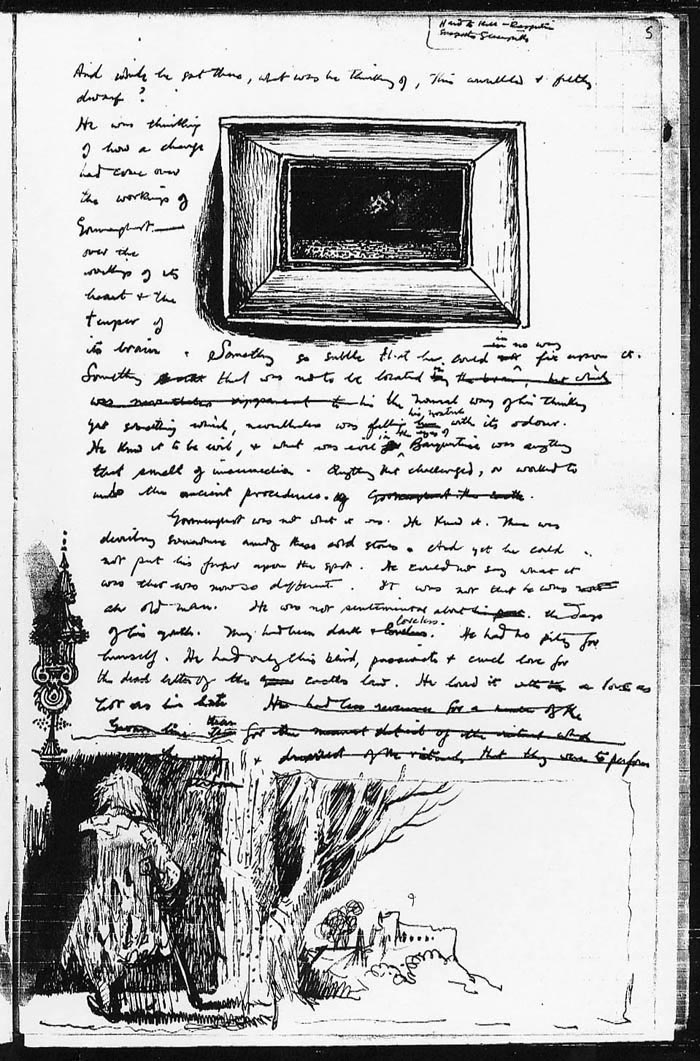 5
And while he sat there, what was he thinking of, this & filthy
dwarf?
He was thinking
of how a change
had come over
the workings of
Gormenghast —
over the
workings of its
heart & the
temper of
its brain. Something so subtle that he could in no way fix upon it.
Something that was not to be located in the brain, but which
was nevertheless apparent to his the normal way of his thinking
yet something which, nevertheless was filling his nostrils with its odour.
He knew it to be evil, & what was evil in the eyes of Barquentine was anything
that smelt of insurrection. Anything that challenged, or worked to
undo the ancient procedures.
Gormenghast was not what it was. He knew it. There was
devilry somewhere among these cold stones. And yet he could
not put his finger upon the spot. He could not say what it
was that was now so different. It was not that he was
an old man. He was not sentimental about the days
of his youth. They had been dark & loveless. He had no pity for
himself. He had only this blind, passionate & cruel love for
the dead letter of the castle's law. He loved it with a love as
hot as his hate He had less reverence for a member of the
Groan line than for the meanest detail of the ritual which
& of the rituals, that they were to perform